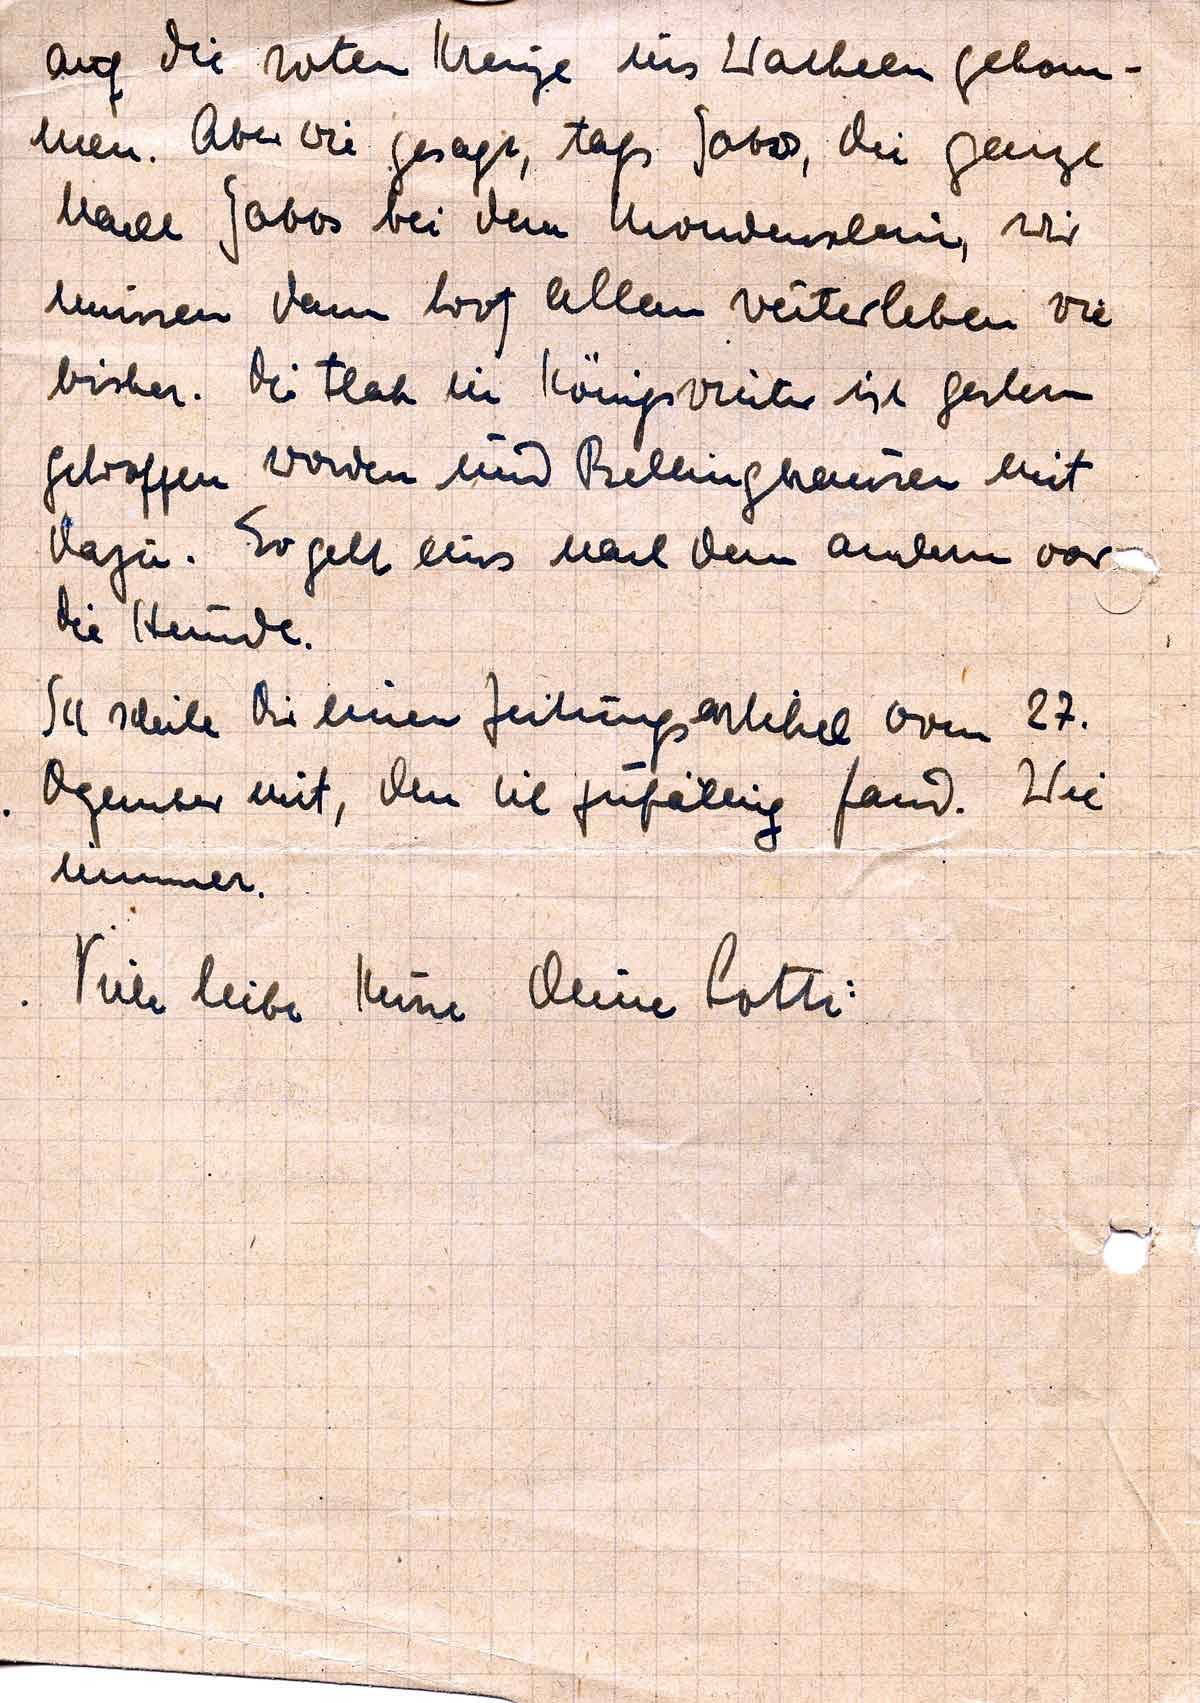 auf die roten Kreuze ins Wackeln gekom-
men. Aber wie gesagt, tags Jabos, die ganze
Nacht Jabos bei dem Mondenschein, wir
müssen dann trotz allem weiterleben wie
bisher. Die Flak in Königswinter ist gestern
getroffen worden und Bellinghausen mit
dazu. So geht eins nach dem andern vor
die Hunde.
Ich schicke Dir einen Zeitungsartikel vom 27.
Dezember mit, den ich zufällig fand. Wie
immer.
Viele liebe Küsse Deine Lotti